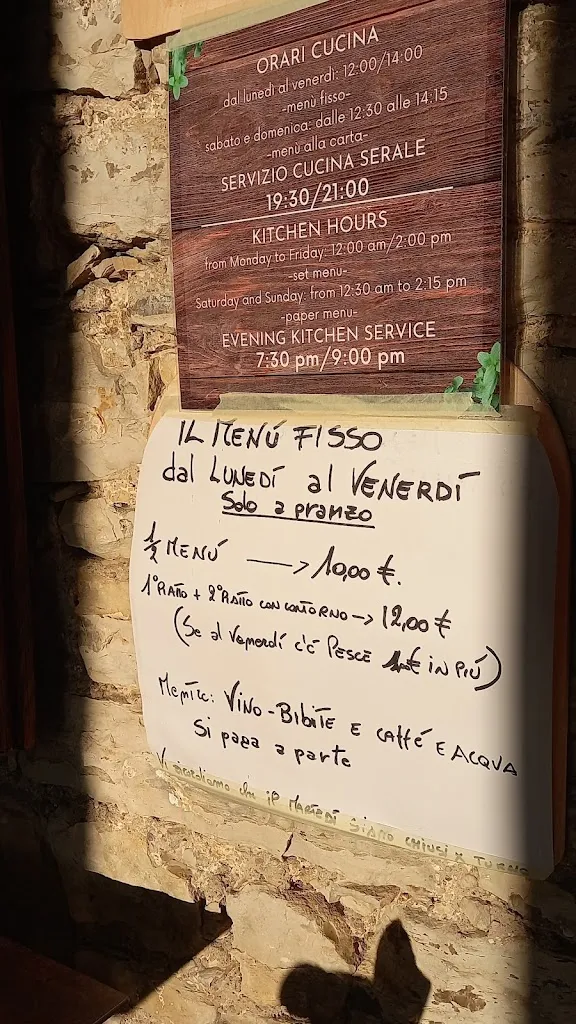 ORARI CUCINA
dal lunedì al venerdì: 12:00/14:00
-menù fisso-
sabato e domenica: dalle 12:30 alle 14:15
-menù alla carta-
SERVIZIO CUCINA SERALE
19:30/21:00
KITCHEN HOURS
from Monday to Friday: 12:00 am/2:00 pm
-set menu-
Saturday and Sunday: from 12:30 am to 2:15 pm
-paper menu-
EVENING KITCHEN SERVICE
7:30 pm/9:00 pm
IL MENÚ FISSO
dal LUNEDÍ al VENERDÍ
Solo a pranzo
1/2 MENÚ → 10,00 €.
1° PIATTO + 2° PIATTO CON CONTORNO → 12,00 €
(Se al Venerdí c'é PESCE € IN PIÚ)
VINO - BIBITE E CAFFÉ E ACQUA
Si paga a parte
Vi ricordiamo che MARTEDÍ SIAMO CHIUSI X TURNO